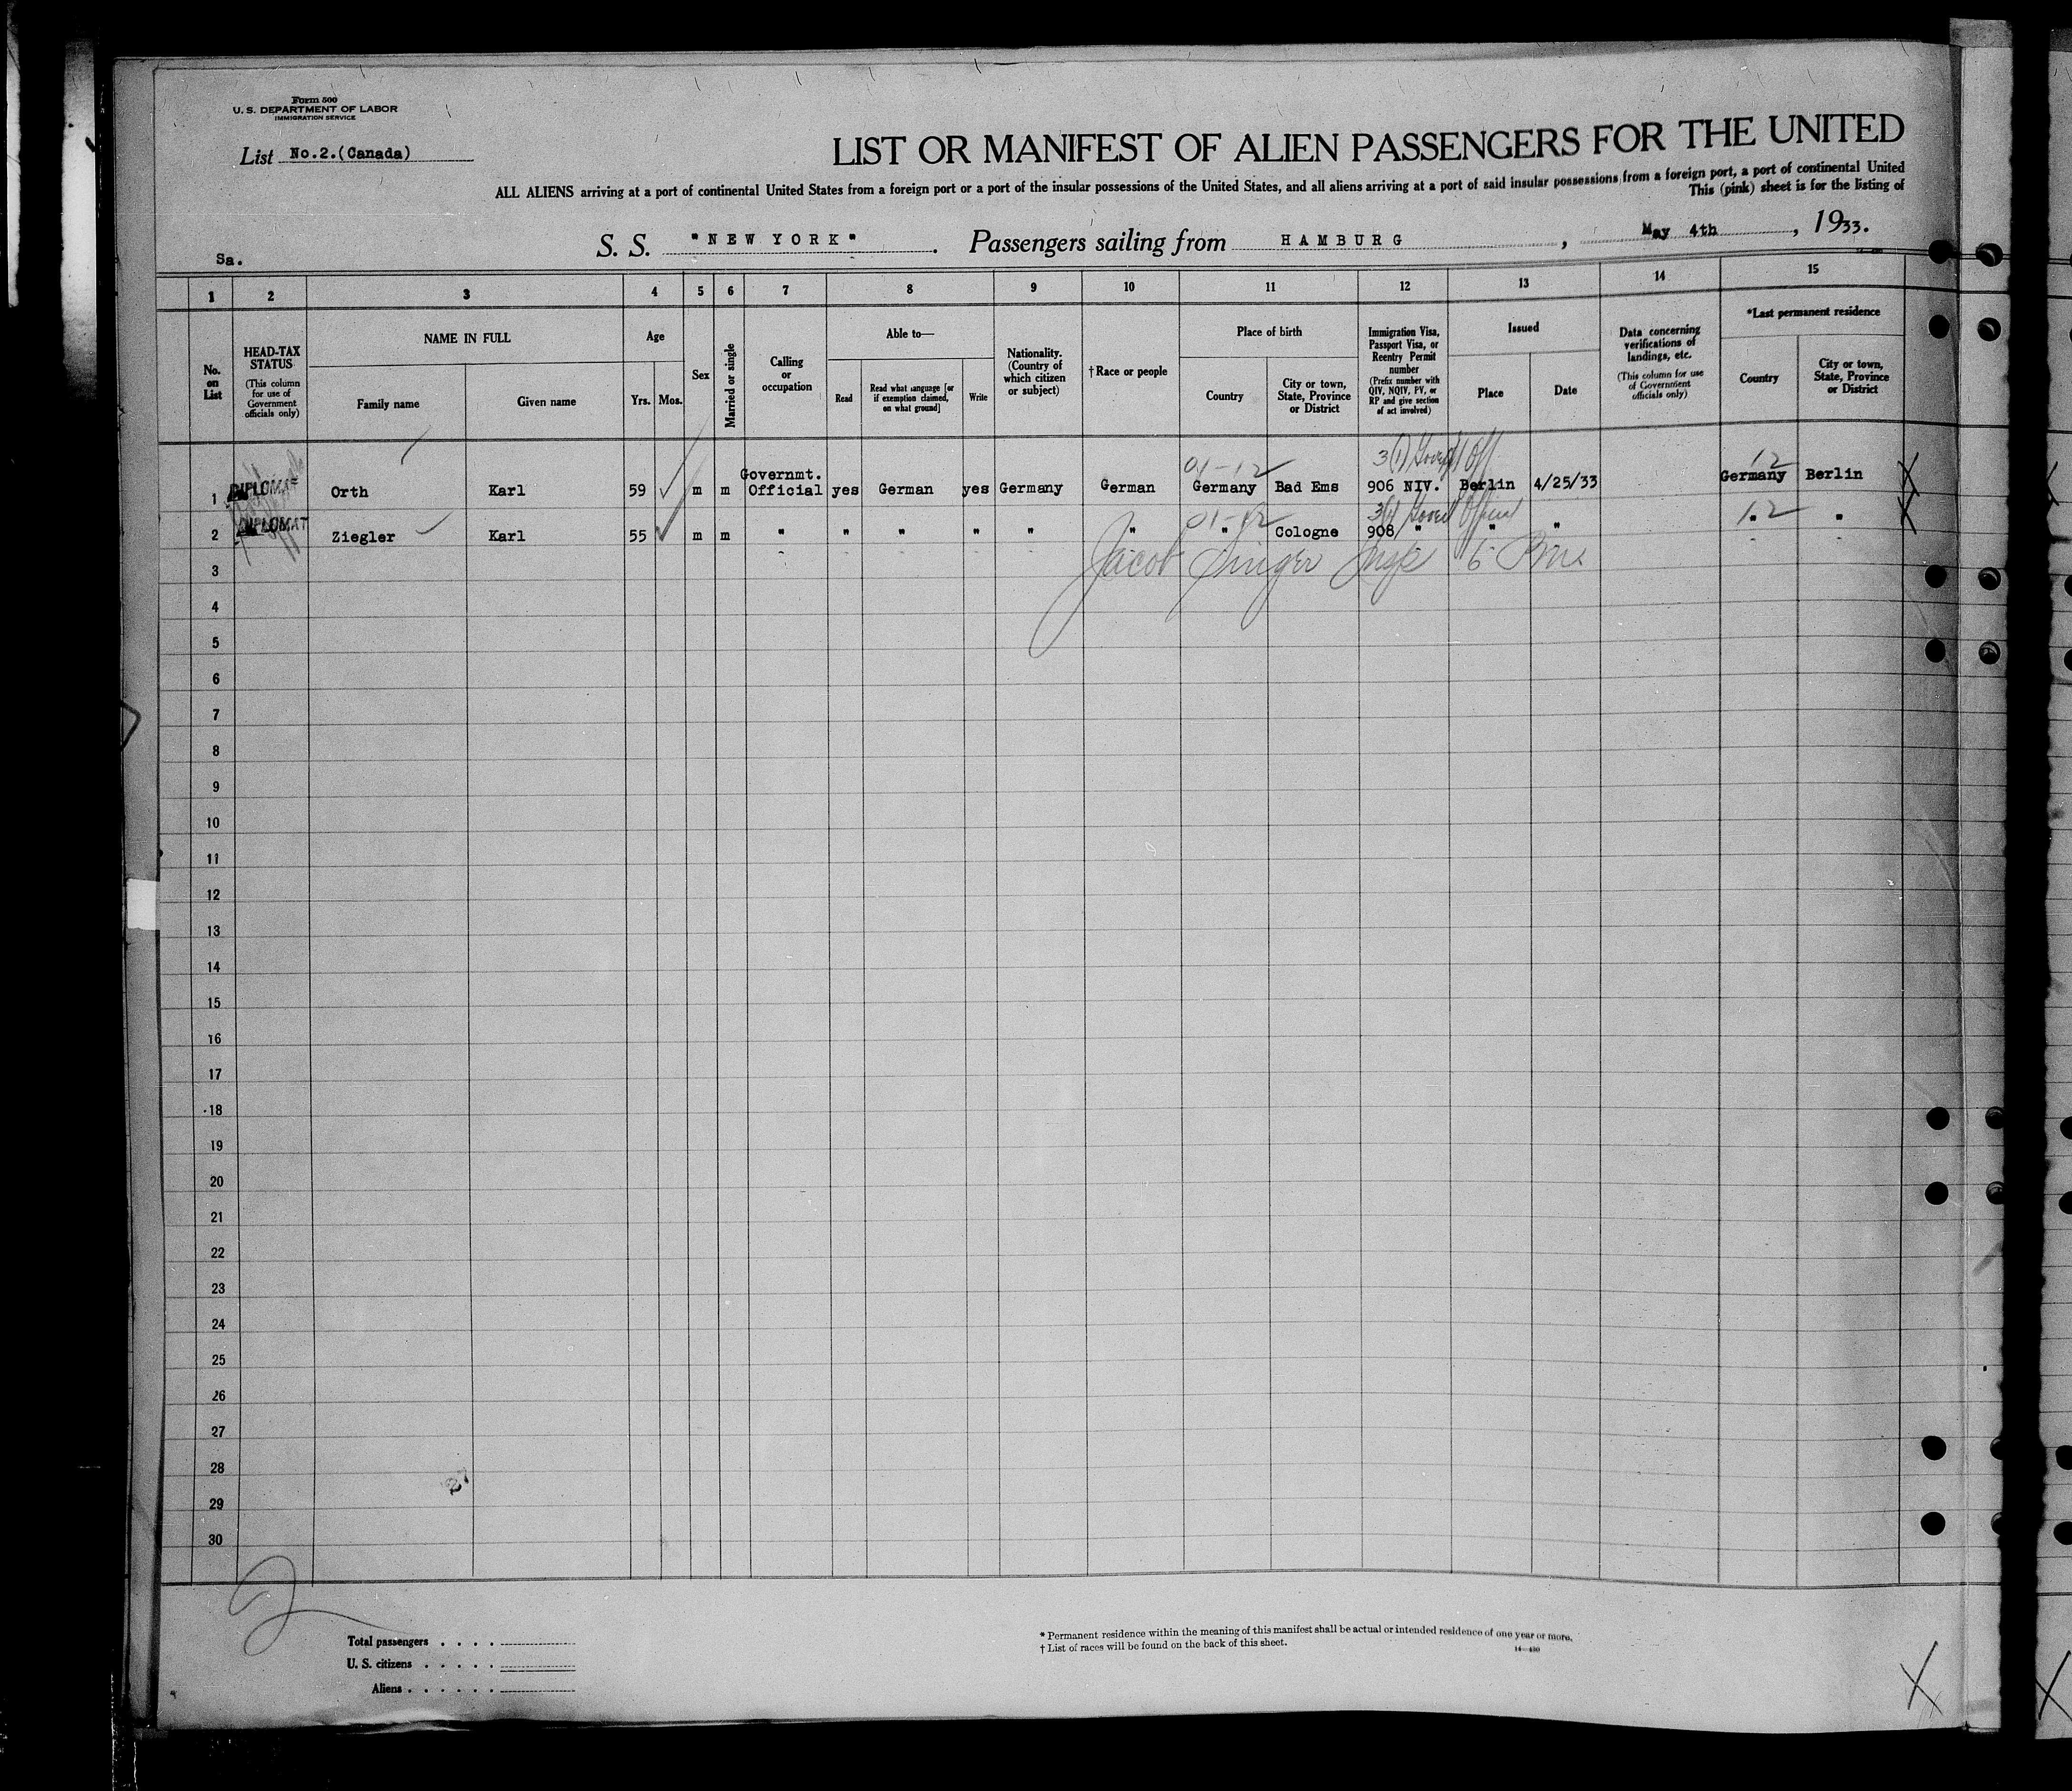 Form 500
U. S. DEPARTMENT OF LABOR
IMMIGRATION SERVICE
List No.2.(Canada)
LIST OR MANIFEST OF ALIEN PASSENGERS FOR THE UNITED
ALL ALIENS arriving at a port of continental United States from a foreign port or a port of the insular possessions of the United States, and all aliens arriving at a port of said insular possessions from a foreign port, a port of continental United
This (pink) sheet is for the listing of
Sa.
S. S. "NEW YORK". Passengers sailing from HAMBURG, May 4th, 1933.
1 2 3 4 5 6 7 8 9 10 11 12 13 14 15
No. on List
HEAD-TAX STATUS
(This column for use of Government officials only)
NAME IN FULL
Family name
Given name
Age
Yrs. Mos.
Sex
Married or single
Calling or occupation
Able to—
Read
Read what language [or if exemption claimed, on what ground]
Write
Nationality. (Country of which citizen or subject)
† Race or people
Place of birth
Country
City or town, State, Province or District
Immigration Visa, Passport Visa, or Reentry Permit number
(Prefix number with QIV, NQIV, PV, or RP and give section of act involved)
Issued
Place
Date
Data concerning verifications of landings, etc.
(This column for use of Government officials only)
*Last permanent residence
Country
City or town, State, Province or District
01-12 3(1) Govt Off 12
1 DIPLOMAT Orth Karl 59 m m Governmt. Official yes German yes Germany German Germany Bad Ems 906 NIV. Berlin 4/25/33 Germany Berlin
01-12 3(1) Govt Official 12
2 DIPLOMAT Ziegler Karl 55 m m " " " " " " " Cologne 908 " " " " "
Jacob Singer Insp
3
4
5
6
7
8
9
10
11
12
13
14
15
16
17
18
19
20
21
22
23
24
25
26
27
28
29
30
2
Total passengers . . . .
U. S. citizens . . . . .
Aliens . . . . . .
* Permanent residence within the meaning of this manifest shall be actual or intended residence of one year or more.
† List of races will be found on the back of this sheet.
14—430